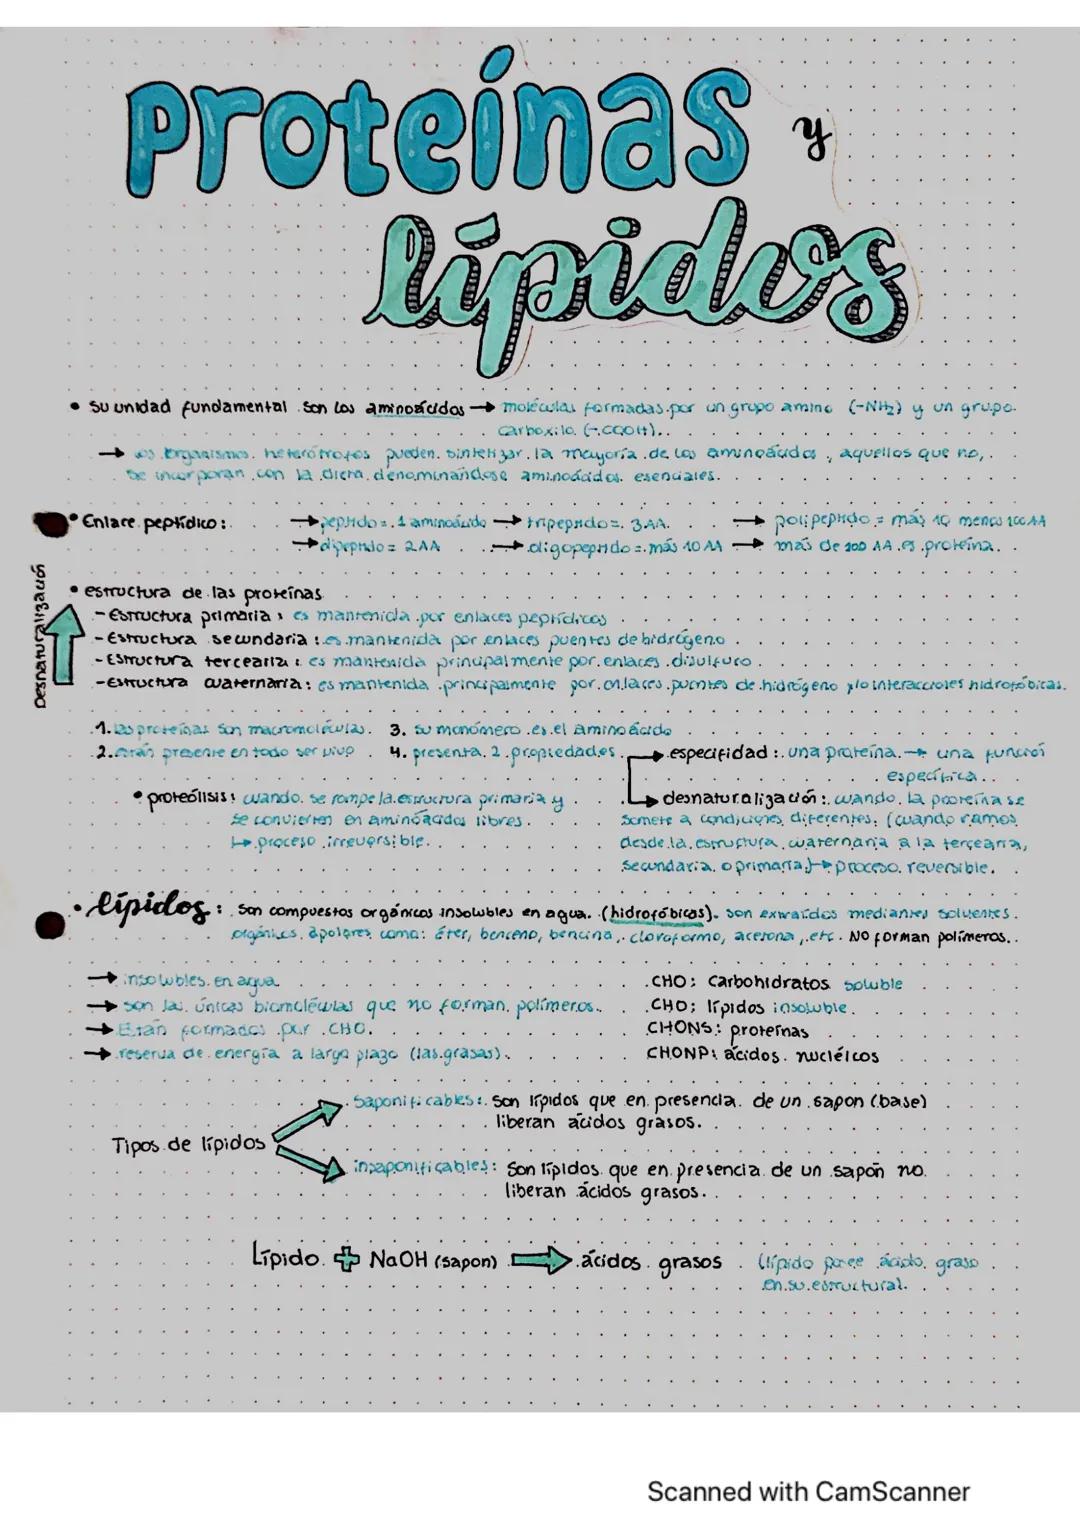 proteínas y
lípidos
• su unidad fundamental son los aminoácidos → moléculas formadas por un grupo amino (-NH₂) y un grupo
carboxilo (-COOH).
→ los organismos heterótrofos pueden sintetizar la mayoría de los aminoácidos, aquellos que no,
se incorporan con la dieta denominándose aminoácidos esenciales.
• Enlace peptídico: → peptido = 1 aminoácido → tripeptido = 3 AA. → polipeptido = más 10 menos 100 AA
→ dipeptido = 2AA → oligopeptido = más 10 AA → más de 100 AA es proteína.
Desnaturalización
• estructura de las proteínas
- Estructura primaria: es mantenida por enlaces peptídicos
- Estructura secundaria: es mantenida por enlaces puentes de hidrógeno
- Estructura tercearia: es mantenida principalmente por enlaces disulfuro
- Estructura cuaternaria: es mantenida principalmente por enlaces puentes de hidrógeno y/o interacciones hidrofóbicas.
1. las proteínas son macromoléculas. 3. su monómero es el aminoácido
2. están presente en todo ser vivo 4. presenta 2 propiedades → especifidad: una proteína → una función
específica.
• proteólisis: cuando se rompe la estructura primaria y
se convierten en aminoácidos libres.
↳ proceso irreversible.
→ desnaturalización: cuando la proteína se
somete a condiciones diferentes. (cuando vamos
desde la estructura cuaternaria a la tercearia,
secundaria o primaria) → proceso reversible.
• lípidos: son compuestos orgánicos insolubles en agua. (hidrofóbicos). son extraídos mediantes solventes
orgánicos apolares como: éter, benceno, bencina, cloroformo, acetona, etc. NO forman polímeros.
→ insolubles en agua
→ son las únicas biomoléculas que no forman polímeros.
→ Están formados por CHO.
→ reserva de energía a largo plazo (las grasas).
CHO: Carbohidratos soluble
CHO: lípidos insoluble
CHONS: proteínas
CHONP: ácidos nucléicos
Tipos de lípidos
Saponificables: Son lípidos que en presencia de un sapon (base)
liberan ácidos grasos.
insaponificables: Son lípidos que en presencia de un sapón no
liberan ácidos grasos.
Lípido + NaOH (sapon) → ácidos grasos (lípido posee ácido graso
en su estructura).
Scanned with CamScanner